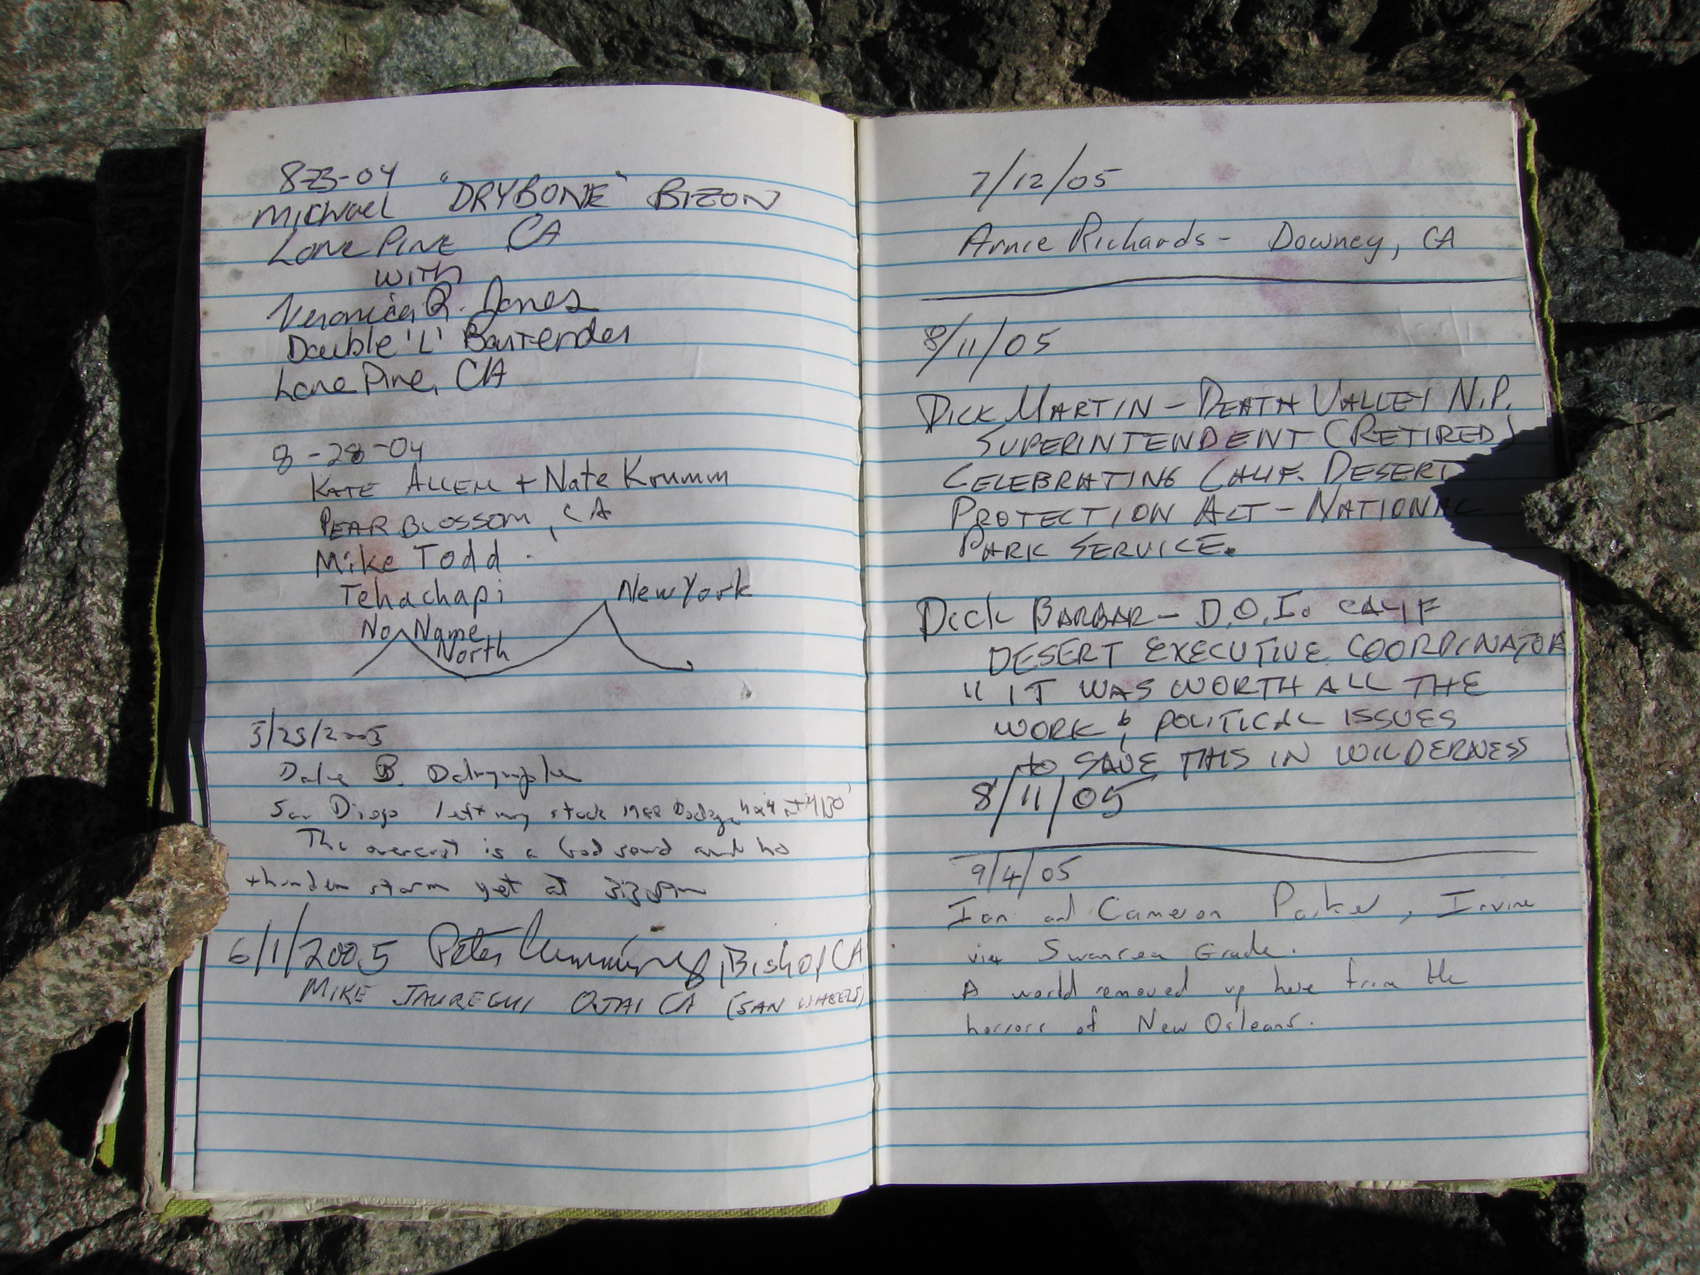 8-23-04
MICHAEL "DRYBONE" BIZON
LONE PINE CA
WITH
Veronica R. Jones
Double 'L' Bartender
Lone Pine, CA
8-28-04
KATE ALLEN + Nate Krumm
PEARBLOSSOM, CA
Mike Todd -
Tehachapi
New York
No Name
North
5/25/2005
Dale B. Dalrymple
San Diego left my stock 1988 Dodge 4x4 at
The overcast is a God send and no
thunder storm yet at
6/1/2005 Peter Cummings, Bishop CA
MIKE JAUREGUI OJAI CA (SAN WHEELS)
7/12/05
Arnie Richards - Downey, CA
8/11/05
DICK MARTIN - DEATH VALLEY N.P.
SUPERINTENDENT (RETIRED)
CELEBRATING CALIF. DESERT
PROTECTION ACT - NATIONAL
PARK SERVICE.
DICK BARBAR - D.O.I. CALIF
DESERT EXECUTIVE COORDINATOR
"IT WAS WORTH ALL THE
WORK & POLITICAL ISSUES
to SAVE THIS IN WILDERNESS
8/11/05
9/4/05
Ian and Cameron Parker, Irvine
via Swansea Grade.
A world removed up here from the
horrors of New Orleans.